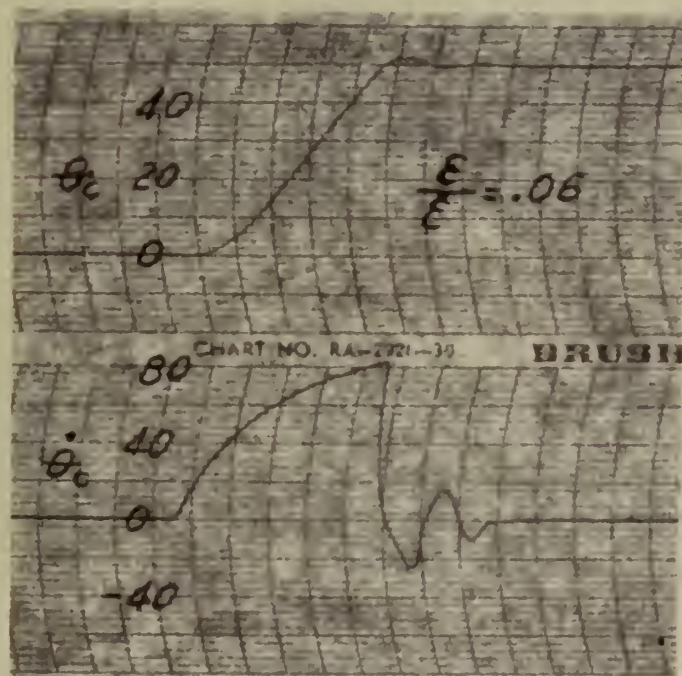 40
θc 20
ε/ξ = .06
0
CHART NO. RA-2921-30 BRUSH
80
40
θ̇c
0
-40